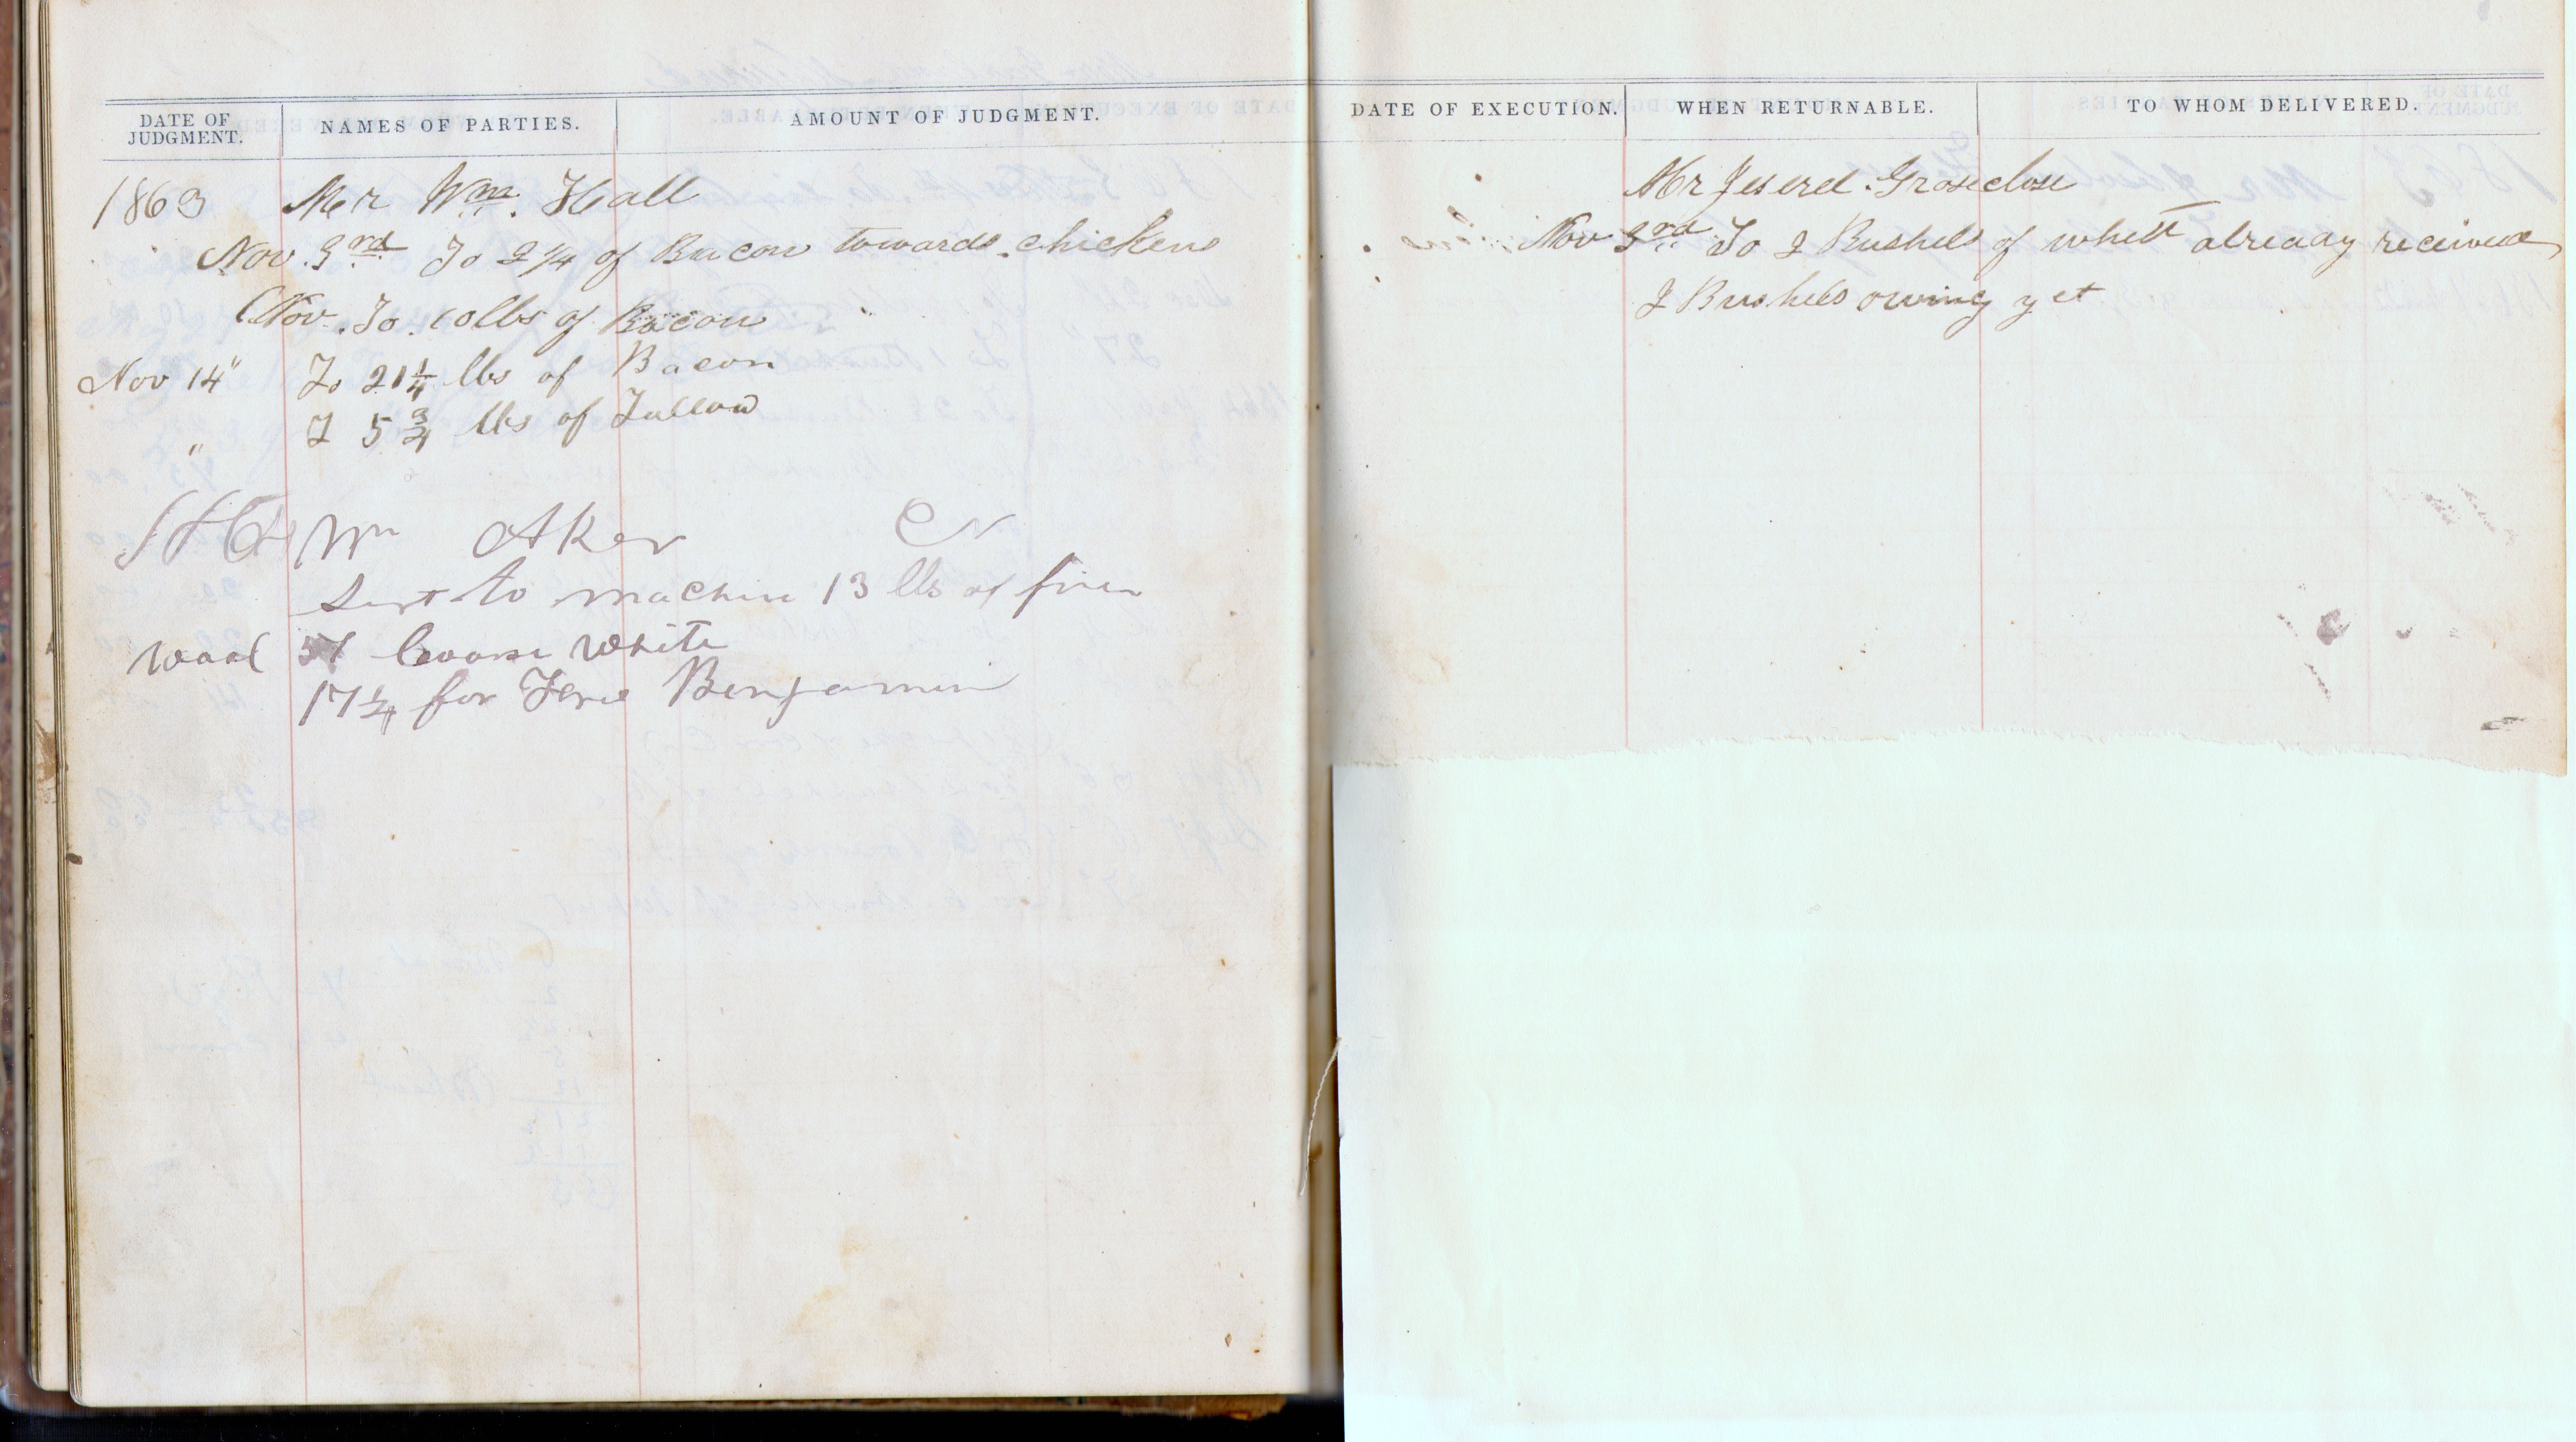 DATE OF JUDGMENT.
NAMES OF PARTIES.
AMOUNT OF JUDGMENT.
1863 Mr Wm. Hall
Nov. 3rd To 2 1/4 of Bacon towards chickens
Nov. To 10 lbs of Bacon
Nov 14" To 21 1/4 lbs of Bacon
" T 5 3/4 lbs of Tallow
Wm Aker
Sent to machine 13 lbs of finen
wool 51 Coarse white
17 1/4 for Benjamin
DATE OF EXECUTION.
WHEN RETURNABLE.
TO WHOM DELIVERED.
Mr Groseclose
Nov 3rd To 2 Bushels of whett already received
2 Bushels owing yet